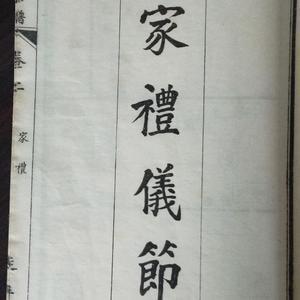 家禮儀節
卷二
家禮